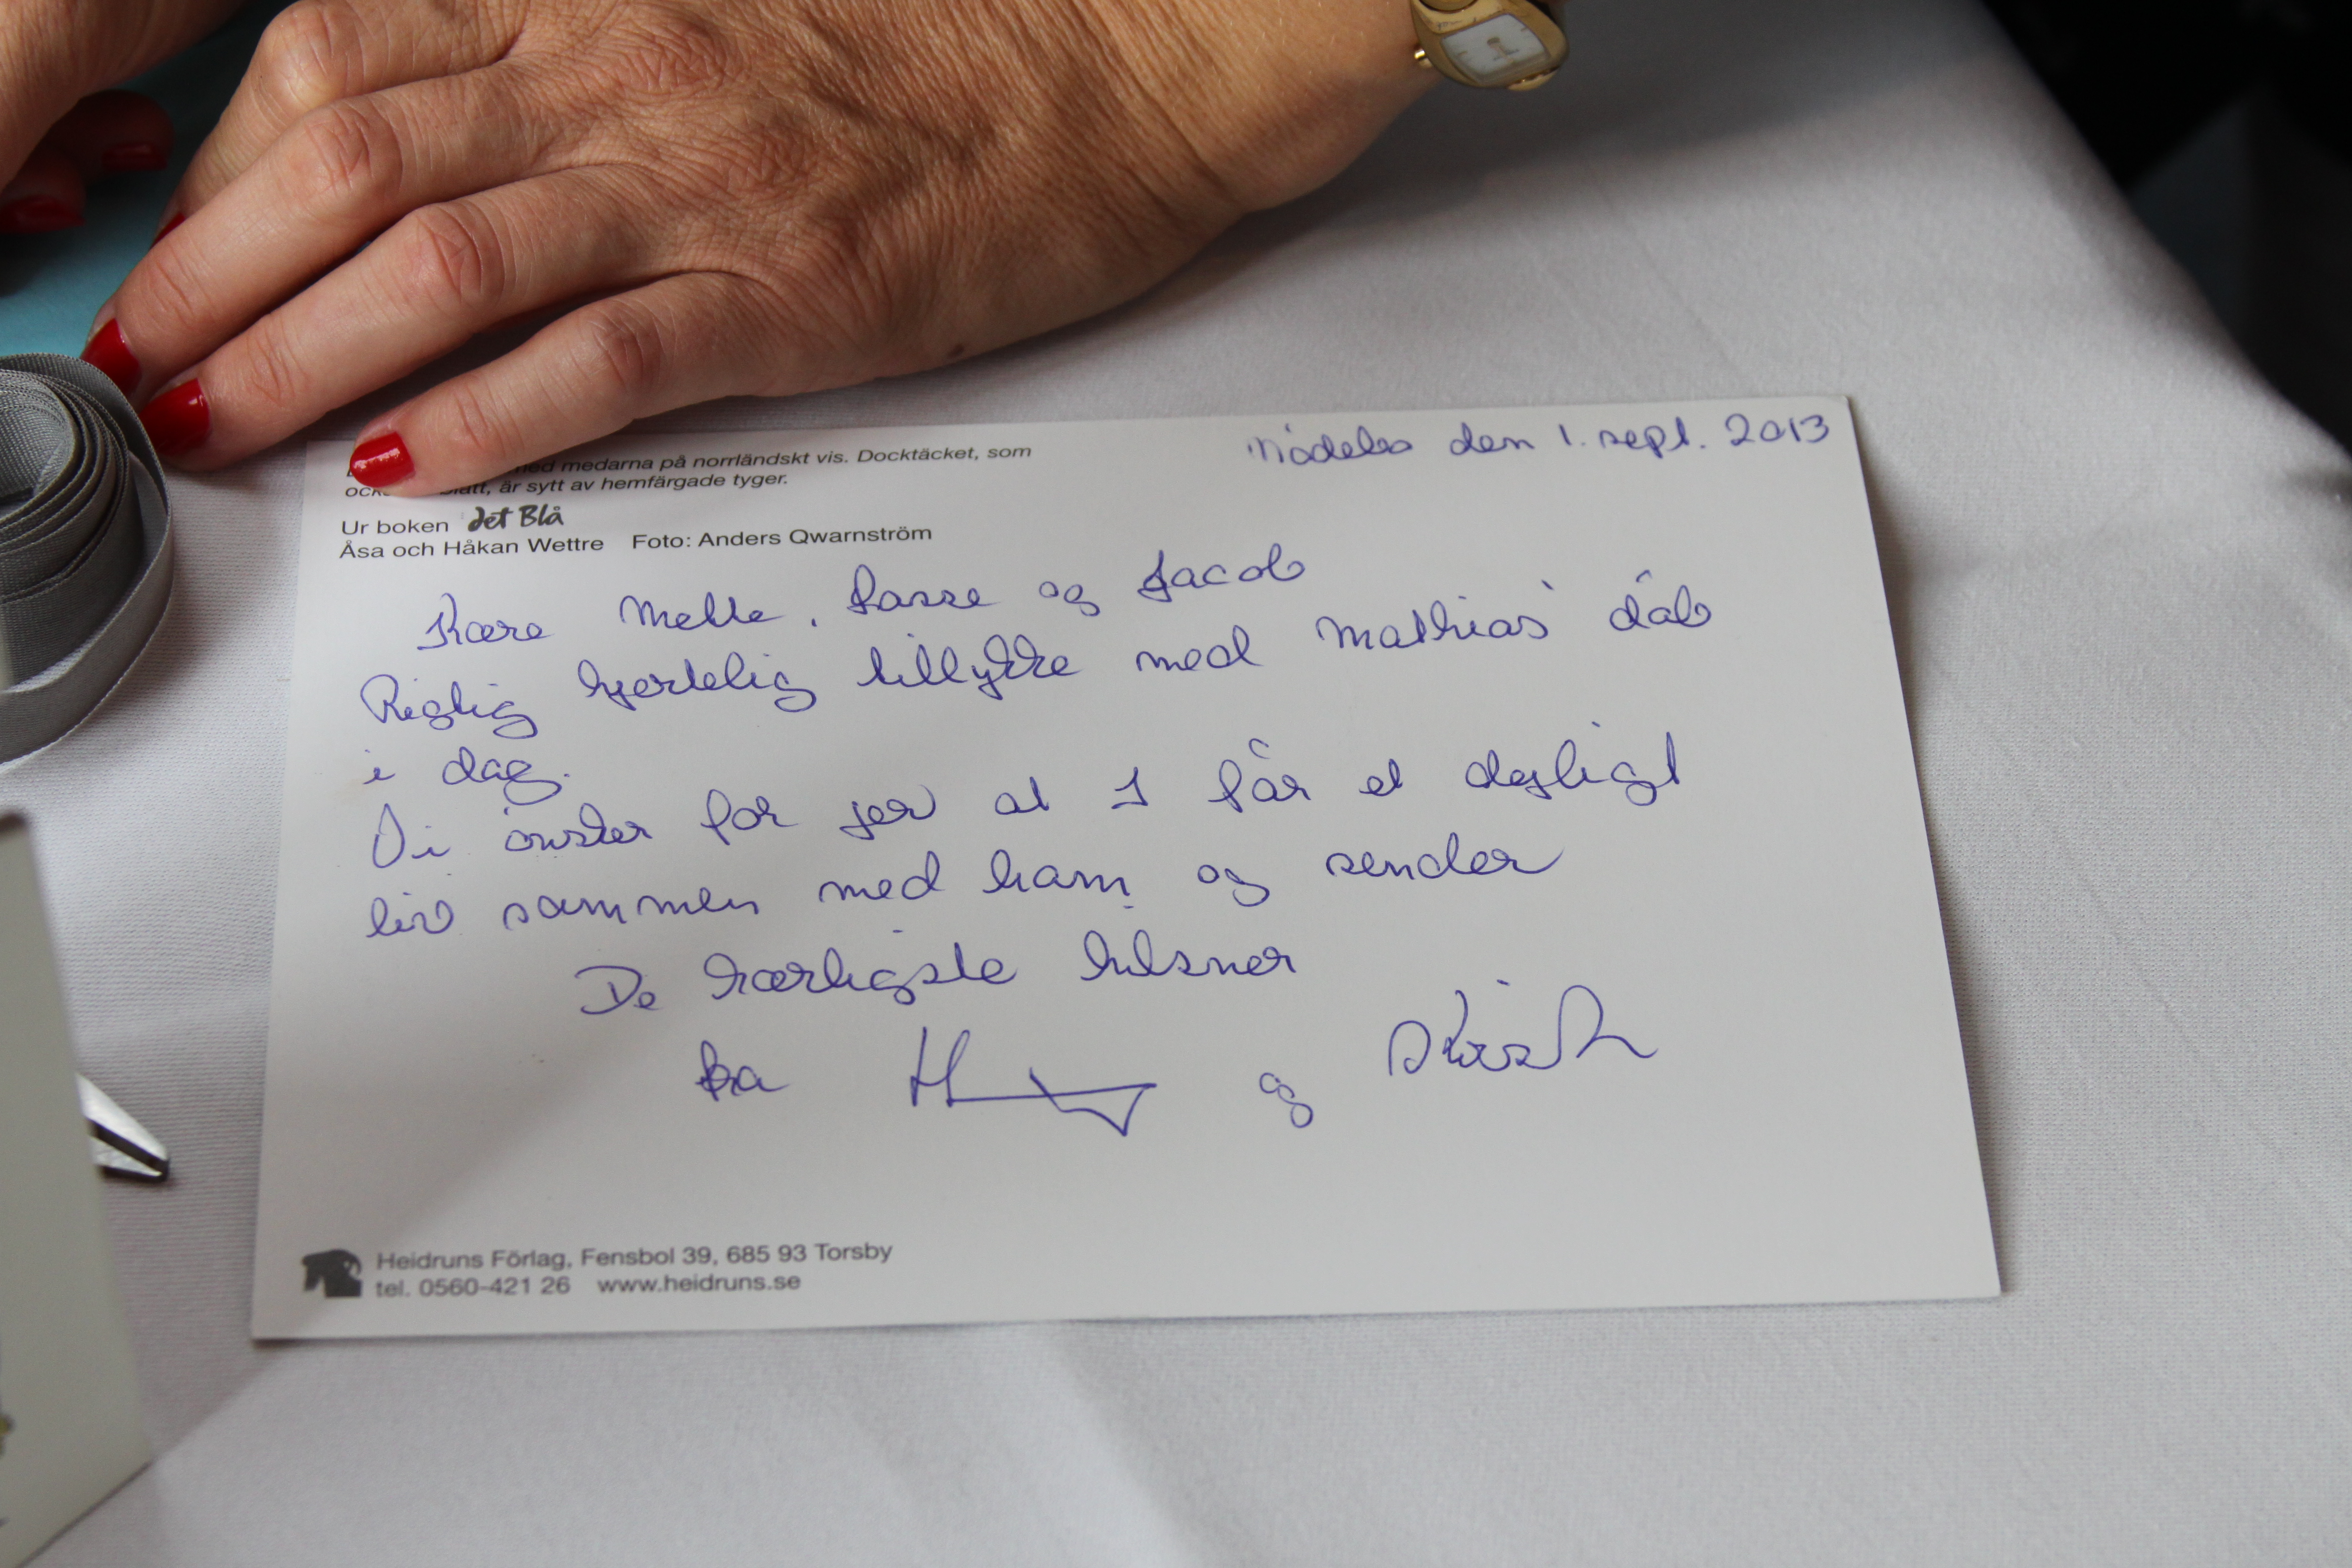 med medarna på norrländskt vis. Docktäcket, som
är sytt av hemfärgade tyger.
Ur boken det Blå
Åsa och Håkan Wettre Foto: Anders Qwarnström
den 1. sept. 2013
Kære Mette, Lasse og Jacob
Rigtig hjertelig tillykke med Mathias' dåb
i dag.
Vi ønsker for jer at I får et dejligt
liv sammen med ham og sender
De kærligste hilsner
fra H og
Heidruns Förlag, Fensbol 39, 685 93 Torsby
tel. 0560-421 26 www.heidruns.se